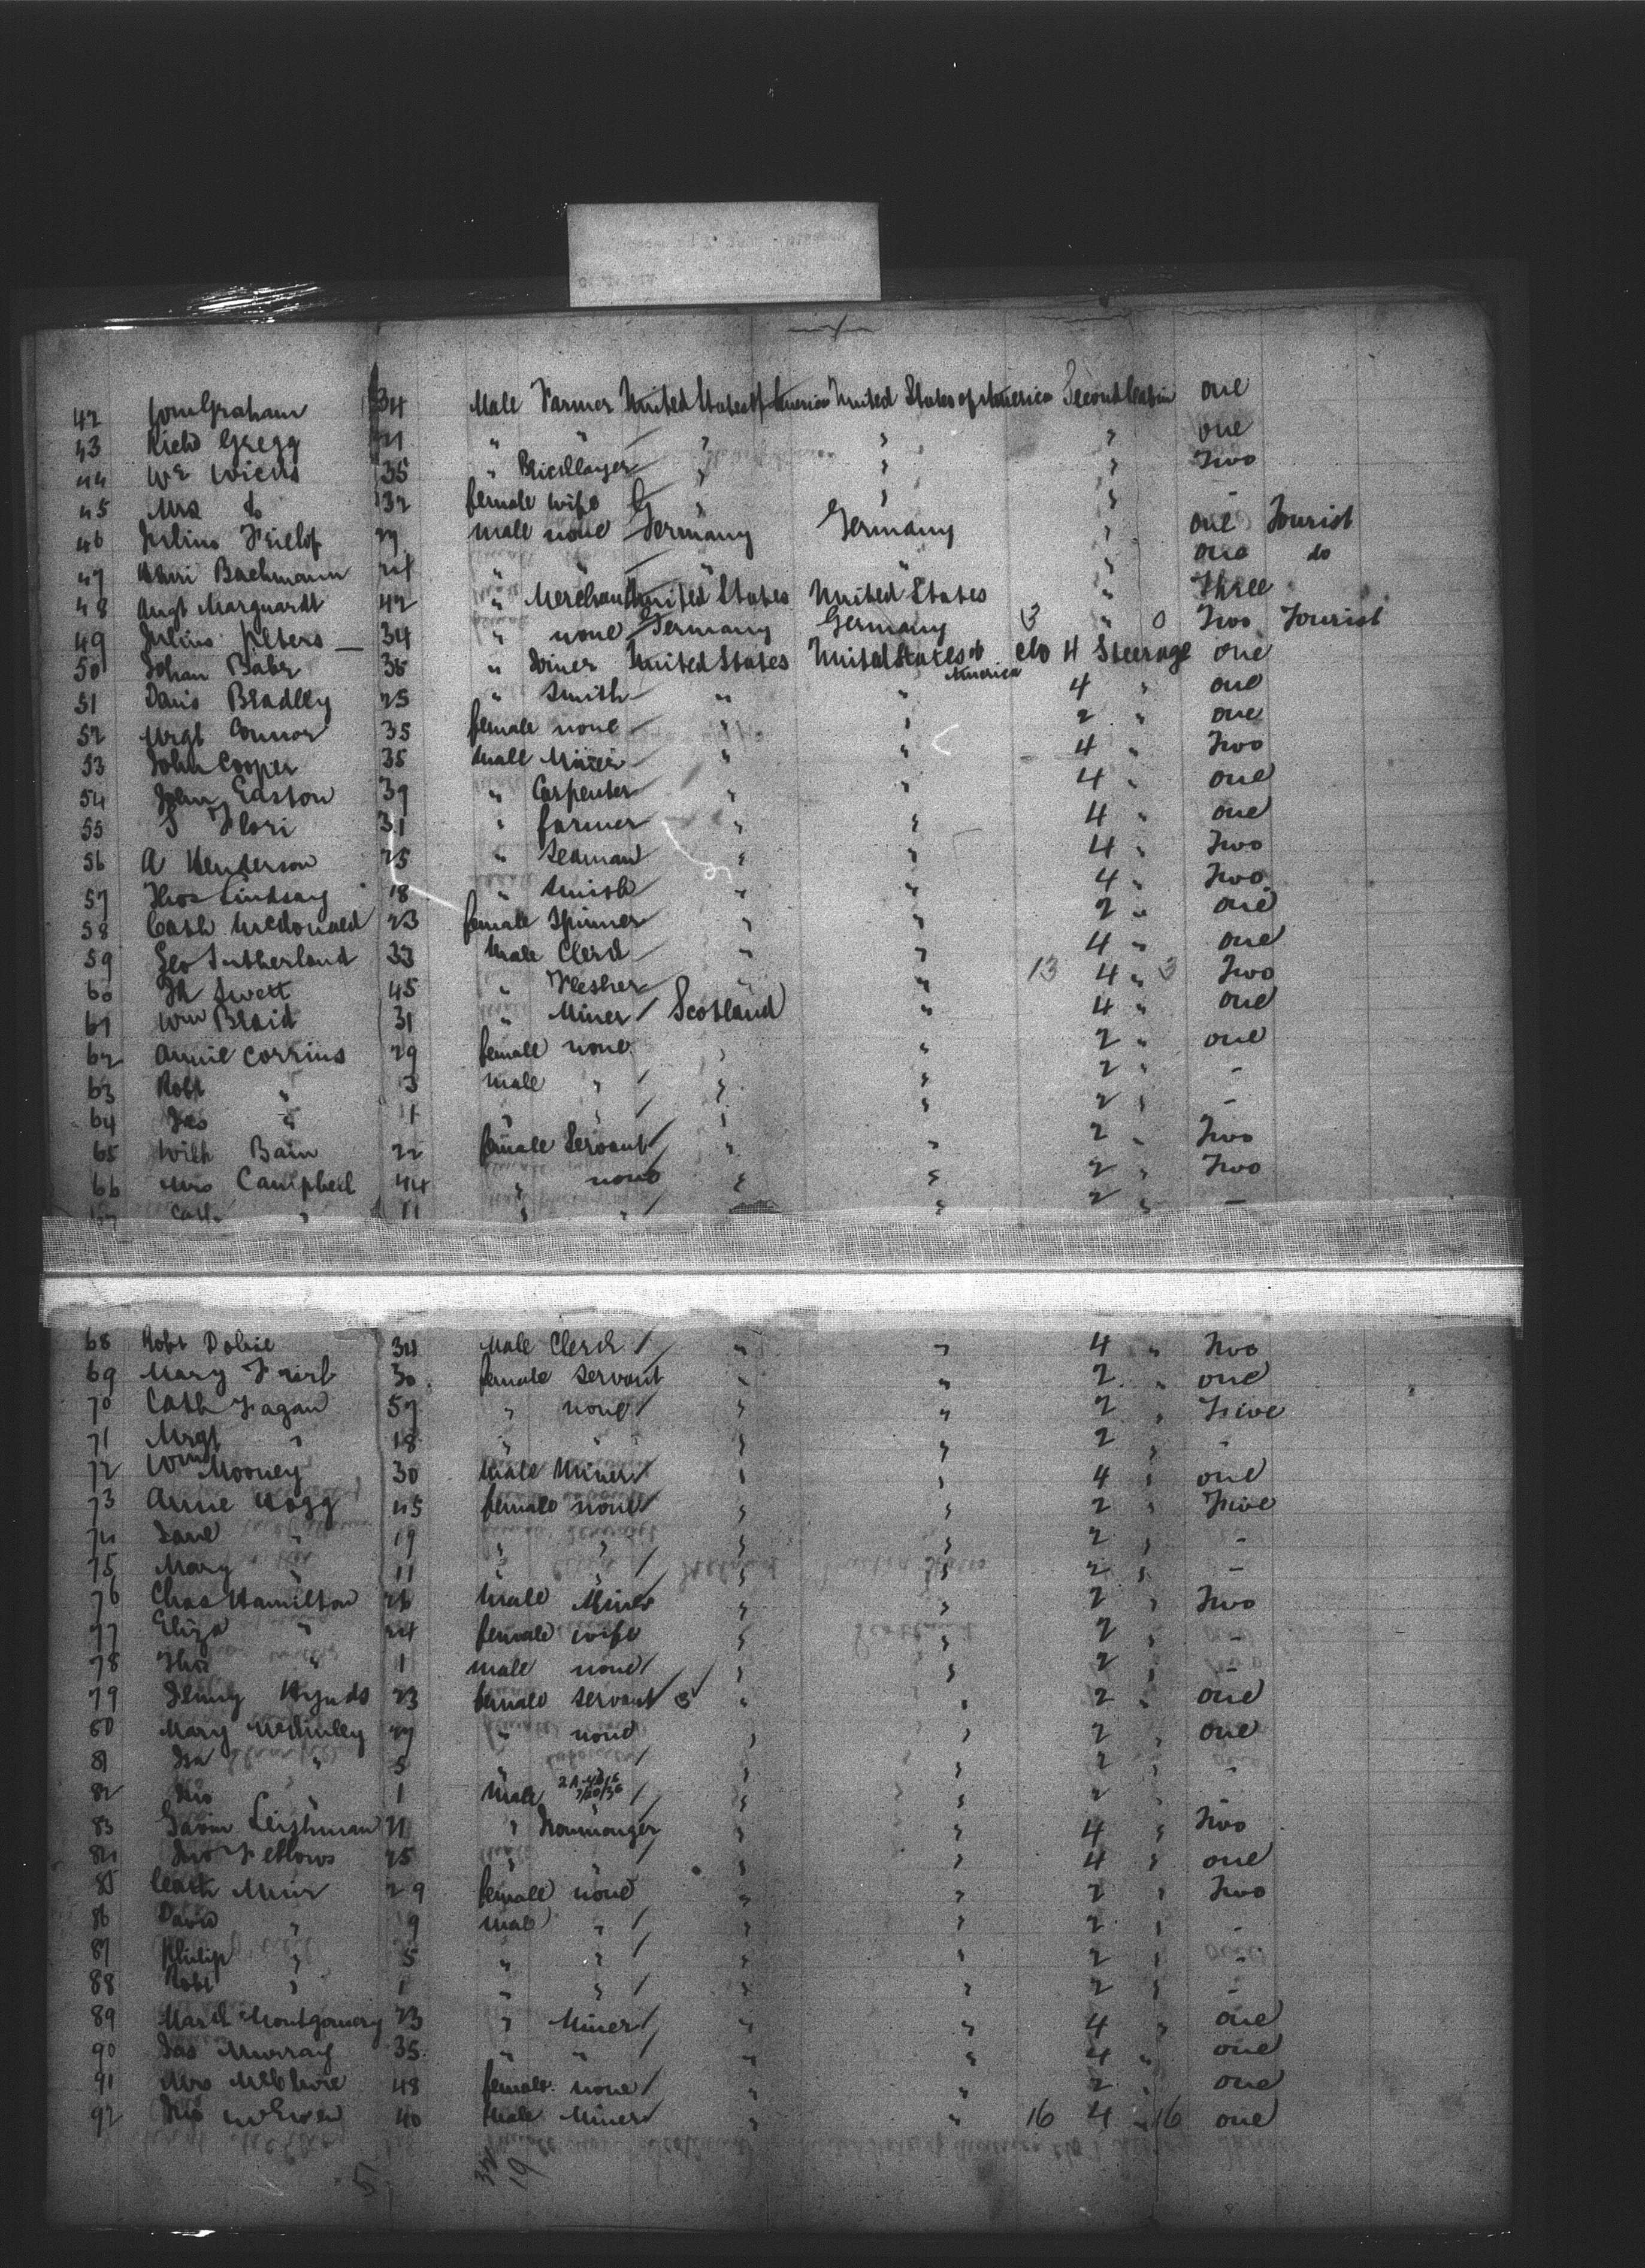 42 Wm Graham 34 Male Farmer United States of America United States of America Second Cabin one
43 Richd Gregg 21 " " " " " one
44 Wm Wicks 35 " Bricklayer " " " Two
45 Mrs do 32 female wife " " " -
46 Julius Frielof 27 male none Germany Germany " one Tourist
47 Henri Bachmann 24 " " " " " one do
48 Augt Marquardt 42 " Merchant United States United States " Three
49 Julius Peters 34 " none Germany Germany 3 " 0 Two Tourist
50 Johan Baber 36 " Joiner United States United States of America clo 4 Steerage one
51 David Bradley 25 " Smith " " 4 " one
52 Mrgt Connor 35 female none " " 2 " one
53 John Cooper 35 Male Miner " " 4 " Two
54 John Easton 39 " Carpenter " " 4 " one
55 Flori 31 " farmer " " 4 " one
56 A Henderson 25 " Seaman " " 4 " Two
57 Thos Lindsay 18 " Smith " " 4 " Two
58 Cath McDonald 23 female Spinner " " 2 " one
59 Geo Sutherland 33 Male Clerk " " 4 " one
60 Swett 45 " Flesher " " 13 4 " 3 Two
61 Wm Braid 31 " Miner Scotland " 4 " one
62 Annie Corrins 29 female none " " 2 " one
63 Robt " 3 male " " " 2 " -
64 Jas " 1 " " " " 2 " -
65 Wilh Bain 22 female Servant " " 2 " Two
66 Mrs Campbell 44 " none " " 2 " Two
67 Cath " 11 " " " " 2 " -
68 Robt Dobie 34 Male Clerk " " 4 " Two
69 Mary 30 female servant " " 2 " one
70 Cath Fagan 57 " none " " 2 " Five
71 Mrgt " 18 " " " " 2 " -
72 Wm Mooney 30 Male Miner " " 4 " one
73 Annie Hogg 45 female none " " 2 " Five
74 Jane " 19 " " " " 2 " -
75 Mary " 11 " " " " 2 " -
76 Chas Hamilton 26 Male Miner " " 2 " Two
77 Eliza " 24 female wife " " 2 " -
78 Thos " 1 male none " " 2 " -
79 Jenny Hynds 23 female servant 3 " " 2 " one
80 Mary McGinley 27 " none " " 2 " one
81 " 5 " " " 2 " -
82 Jno " 1 Male " " 2 " -
83 Gavin Leishman 21 " Ironmonger " " 4 " Two
84 Jno Fellows 25 " " " " 4 " one
85 Cath Muir 29 female none " " 2 " Two
86 David " 9 male " " " 2 " -
87 Philip " 5 " " " " 2 " -
88 Robt " 1 " " " " 2 " -
89 Montgomery 23 " Miner " " 4 " one
90 Jas Murray 35 " " " " 4 " one
91 Mrs 48 female none " " 2 " one
92 Jno McEwen 40 Male Miner " " 16 4 " 16 one
5 19